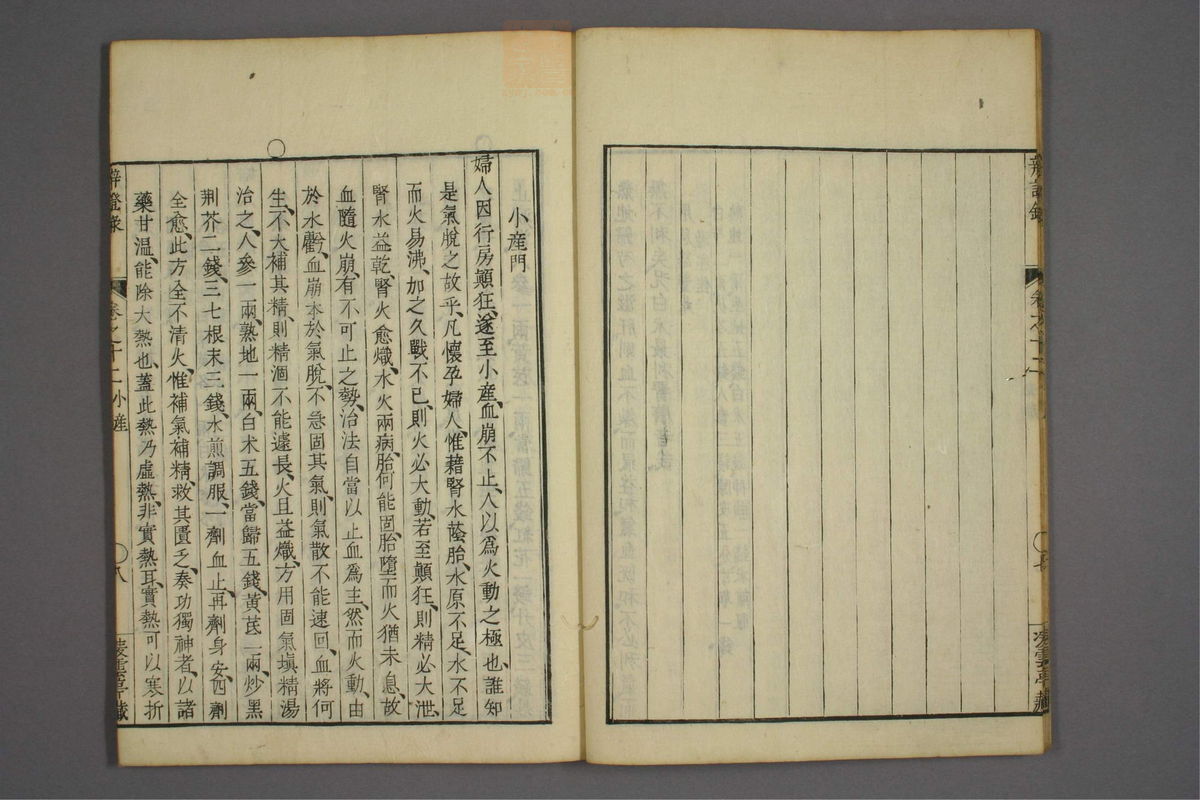 辨證錄 卷之十二
凌雲亭藏
小產門
婦人因行房顛狂、遂至小產、血崩不止、人以爲火動之極也、誰知
是氣脫之故乎、凡懷孕婦人、惟藉腎水蔭胎、水原不足、水不足
而火易沸、加之久戰不已、則火必大動、若至顛狂、則精必大泄、
腎水益乾、腎火愈熾、水火兩病、胎何能固、胎墮而火猶未息、故
血隨火崩、有不可止之勢、治法自當以止血爲主、然而火動、由
於水虧、血崩本於氣脫、不急固其氣、則氣散不能速回、血將何
生、不大補其精、則精涸不能遽長、火且益熾、方用固氣塡精湯
治之、人參一兩、熟地一兩、白朮五錢、當歸五錢、黃芪一兩、炒黑
荆芥二錢、三七根末三錢、水煎調服、一劑血止、再劑身安、四劑
全愈、此方全不清火、惟補氣補精、救其匱乏、奏功獨神者、以諸
藥甘溫、能除大熱也、蓋此熱乃虛熱、非實熱耳、實熱可以寒折
辨證錄 卷之十二 小產 八 凌雲亭藏